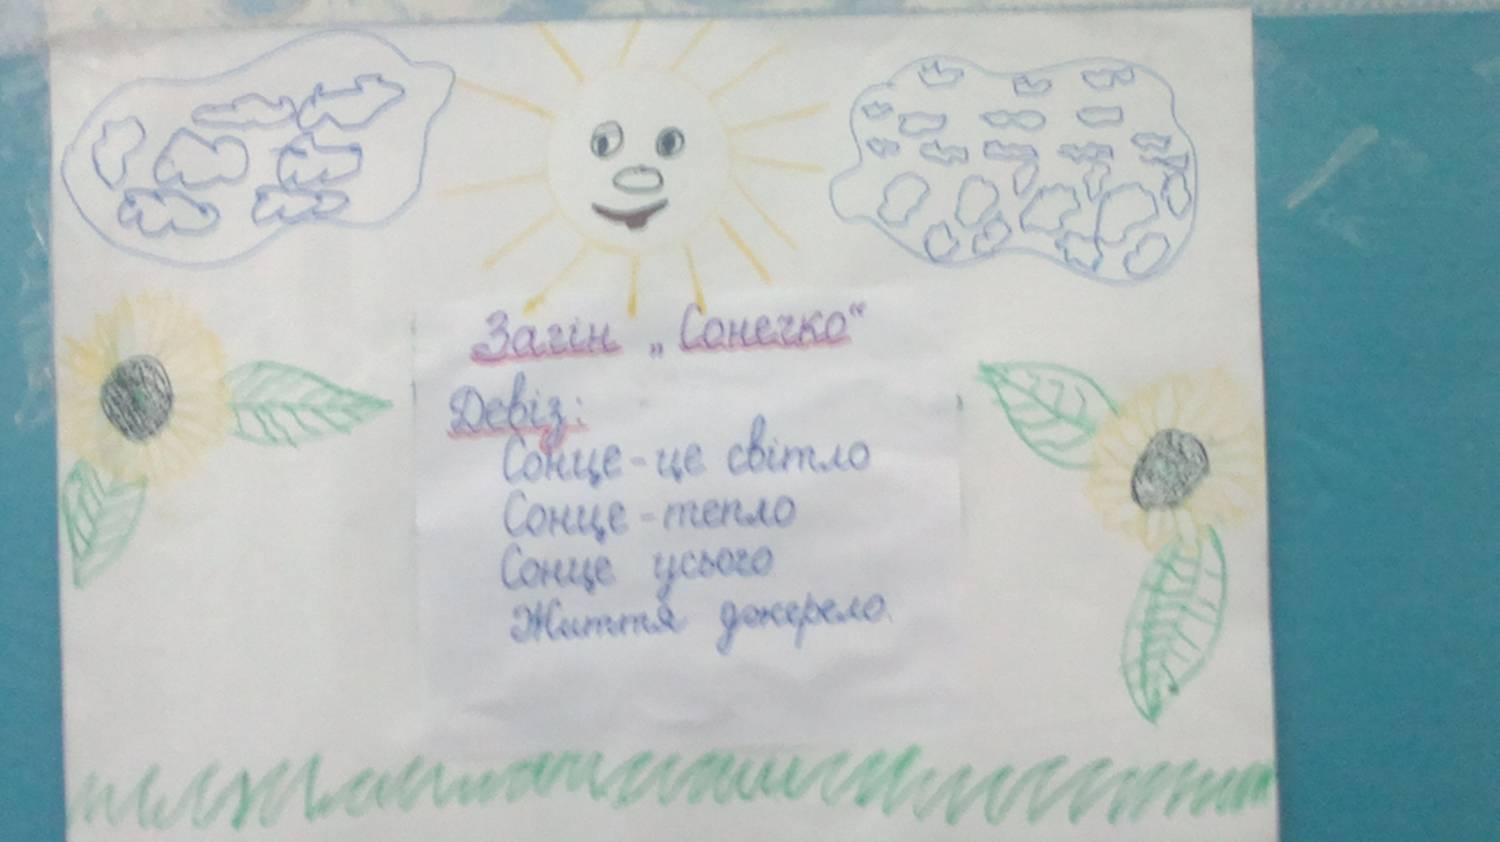 Загін „Сонечко“
Девіз:
Сонце - це світло
Сонце - тепло
Сонце усього
Життя джерело.